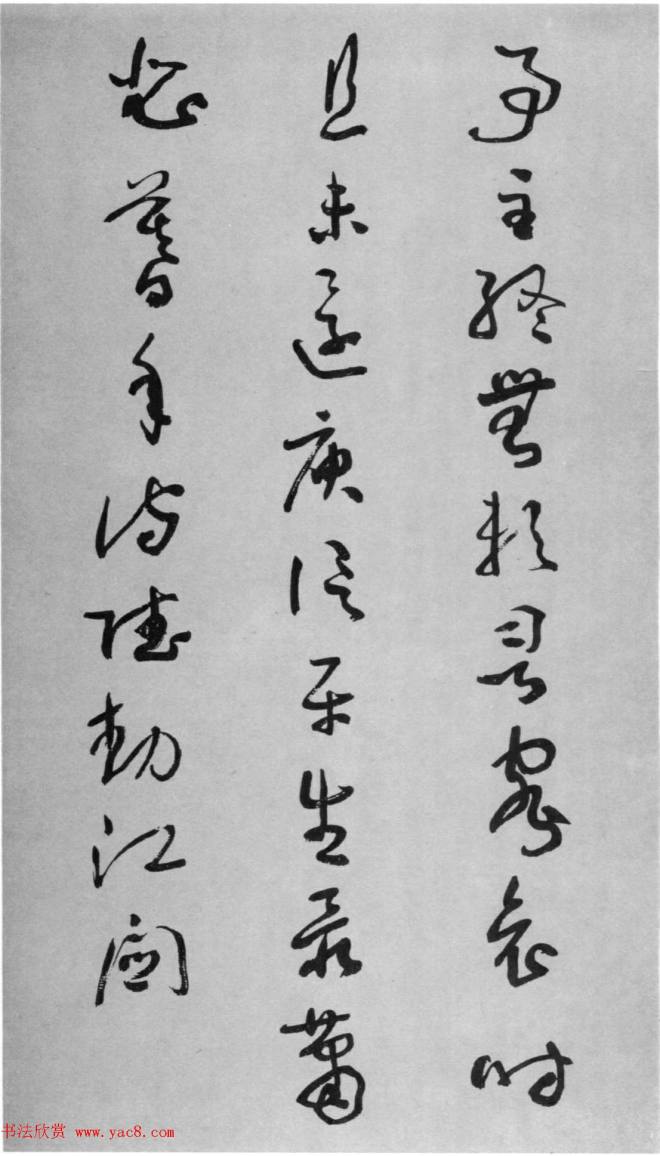 事主终無賴詞客哀時
且未還庾信平生最蕭
瑟暮年詩賦動江關
书法欣赏 www.yac8.com